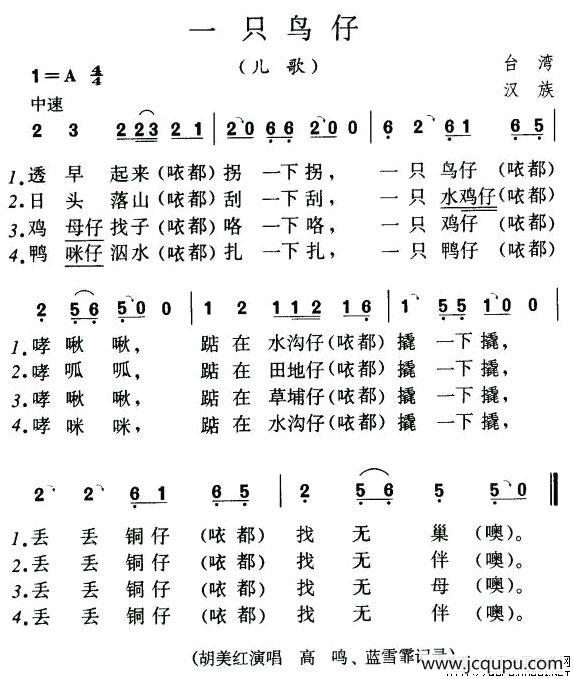 一只鸟仔
(儿歌)
1=A 4/4
台湾
中速
汉族
2 3 223 21 | 20 66 20 0 | 6 2 61 65 |
1.透早起来(咴都)拐一下拐,一只鸟仔(咴都)
2.日头落山(咴都)刮一下刮,一只水鸡仔(咴都)
3.鸡母仔找子(咴都)咯一下咯,一只鸡仔(咴都)
4.鸭咪仔泅水(咴都)扎一下扎,一只鸭仔(咴都)
2 56 50 0 | 1 2 112 16 | 1 55 10 0 |
1.哮啾啾,踮在水沟仔(咴都)撬一下撬,
2.哮呱呱,踮在田地仔(咴都)撬一下撬,
3.哮啾啾,踮在草埔仔(咴都)撬一下撬,
4.哮咪咪,踮在水沟仔(咴都)撬一下撬,
2 2 61 65 | 2 56 5 50 ‖
1.丢丢铜仔(咴都)找无巢(噢)。
2.丢丢铜仔(咴都)找无伴(噢)。
3.丢丢铜仔(咴都)找无母(噢)。
4.丢丢铜仔(咴都)找无伴(噢)。
(胡美红演唱 高鸣、蓝雪霏记录)
www.jcqupu.com